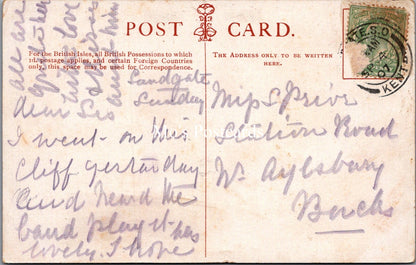 POST CARD.
For the British Isles, all British Possessions to which
1d. postage applies, and certain Foreign Countries
only, this space may be used for Correspondence.
THE ADDRESS ONLY TO BE WRITTEN
HERE.
KENT
Sandgate
Sunday
dear
I went on this
Cliff yesterday
and heard the
band play it was
lovely. I hope
all are
Love
Miss S Price
Station Road
Nr Aylsbury
Bucks